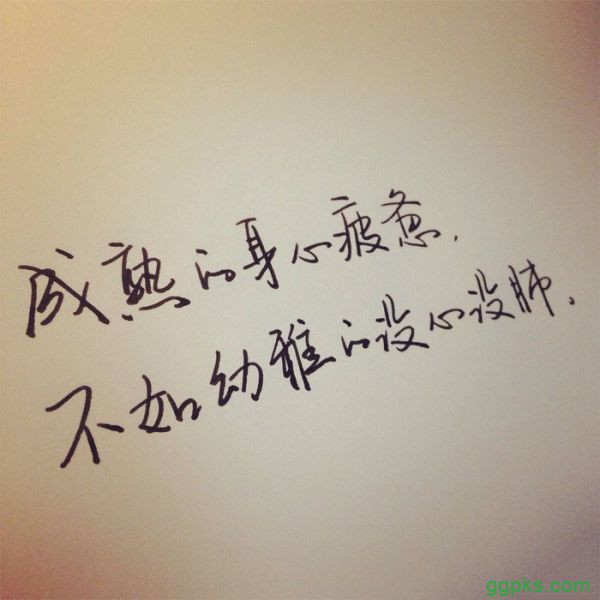 成熟的身心疲惫.
不如幼稚的没心没肺.
ggpks.com